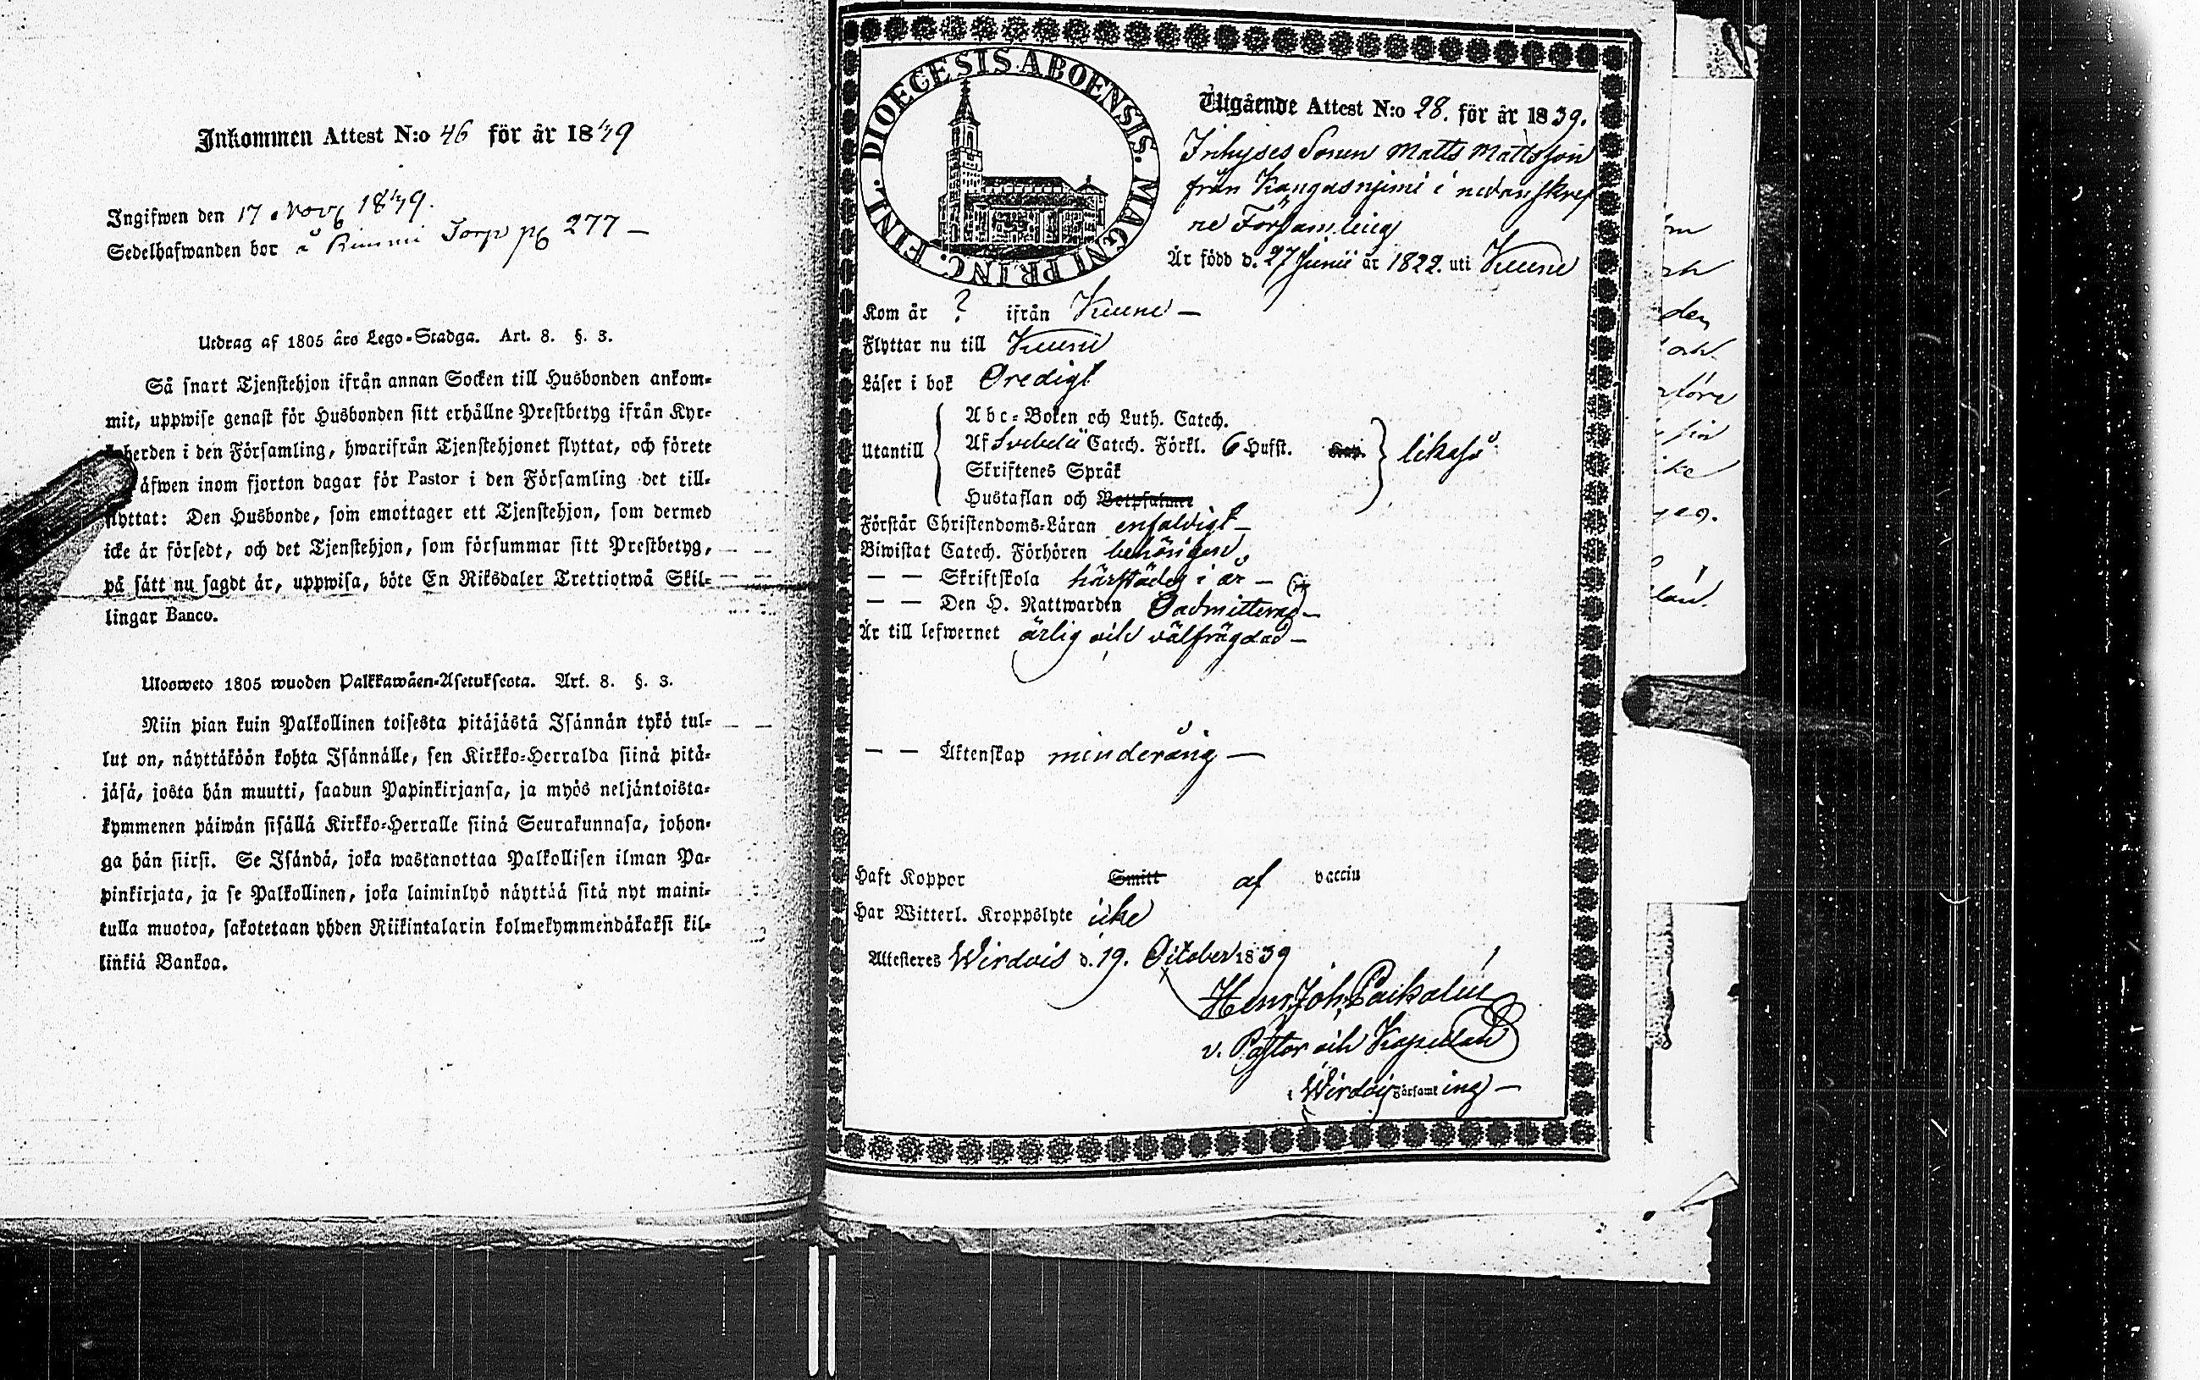 Inkommen Attest N:o 46 för år 1849
Ingifwen den 17 Novb 1849.
Sedelhafwanden bor å Rimmi Torp pg 277 —
Utdrag af 1805 års Lego-Stadga. Art. 8. §. 3.
Så snart Tjenstehjon ifrån annan Socken till Husbonden ankom-
mit, uppwise genast för Husbonden sitt erhållne Prestbetyg ifrån Kyr-
koherden i den Församling, hwarifrån Tjenstehjonet flyttat, och förete
äfwen inom fjorton dagar för Pastor i den Församling det till-
flyttat: Den Husbonde, som emottager ett Tjenstehjon, som dermed
icke är försedt, och det Tjenstehjon, som försummar sitt Prestbetyg,
på sätt nu sagdt är, uppwisa, böte En Riksdaler Trettiotwå Skil-
lingar Banco.
Ulosweto 1805 wuoden Palkkawäen-Asetuksesta. Art. 8. §. 3.
Niin pian kuin Palkollinen toisesta pitäjästä Isännän tykö tul-
lut on, näyttäköön kohta Isännälle, sen Kirkko-Herralda siinä pitä-
jäsä, josta hän muutti, saadun Papinkirjansa, ja myös neljäntoista-
kymmenen päiwän sisällä Kirkko-Herralle siinä Seurakunnasa, johon-
ga hän siirsi. Se Isändä, joka wastanottaa Palkollisen ilman Pa-
pinkirjata, ja se Palkollinen, joka laiminlyö näyttää sitä nyt maini-
tulla muotoa, sakotetaan yhden Riikintalarin kolmekymmendäkaksi kil-
linkiä Bankoa.
DIOECESIS ABOENSIS. MAGNI PRINC. FINL.
Utgående Attest N:o 28. för år 1839.
Inhyses Sonen Matts Mattsson
från Kangasnjemi i nedanskref
ne Församling
Är född d. 27 Junii år 1822. uti
Kom år ? ifrån
Flyttar nu till
Läser i bok
Abc-Boken och Luth. Catech.
Utantill Af Svebelii Catech. Förkl. 6 Hufst. Kap. likaså
Skriftenes Språk
Hustaflan och Botpsalmer
Förstår Christendoms-Läran enfaldigt —
Biwistat Catech. Förhören behörigen,
— — Skriftskola härstädes i år —
— — Den H. Nattwarden Oadmitterad —
Är till lefwernet ärlig och välfrägdad —
— — Äktenskap minderårig —
Haft Koppor Smitt af vaccin
Har Witterl. Kroppslyte icke
Attesteres Wirdois d. 19. October 1839
Henr. Joh.
v. Pastor och Kapellan
i Wirdois Församling —